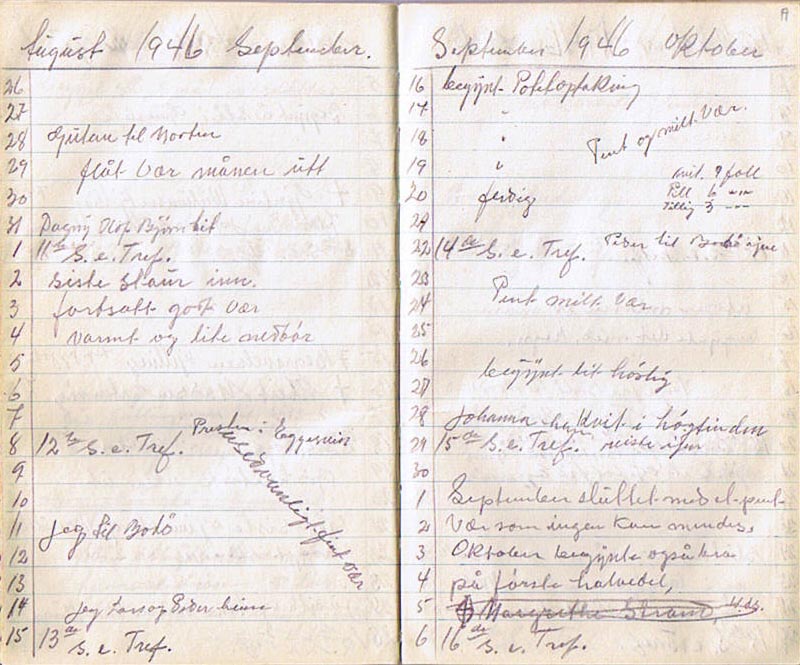 August 1946 September.
26
27
28 Gutan til
29 flåt Vær månen útt
30
31 Dagny Olof Bjørn hit
1 11te S. e. Tref.
2 siste staur inn.
3 fortsatt godt Vær
4 varmt og lite nedbór
5
6
7
8 12te S. e. Tref. Presten i
usedvanligt fint Vær
9
10
11 Jeg til Bodö
12
13
14 Jeg heim
15 13de S. e. Tref.
September 1946 Oktober
16 begÿnt Potetoptakning
17 "
18 " Pent og mildt Vær.
19 "
20 ferdig
21
22 14de S. e. Tref. Peder til Bodö
23
24 Pent mildt Vær
25
26
27 begÿnt bli höstlig
28 Johanna han Kvit i
29 15de S. e. Tref. reiste
30
1 September sluttet med et pent
2 Vær som ingen kan mindes,
3 Oktober begÿnte også bra
4 på første halvedel,
5 Margrethe Strand, 4.ds.
6 16de S. e. Tref.